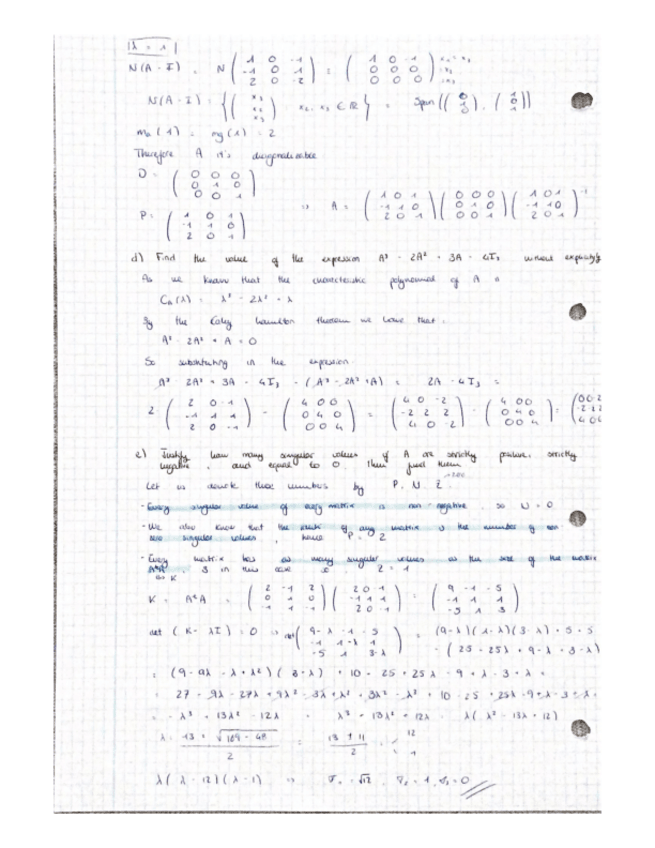 λ = 1
N(A - I) = N ( 1 0 -1 / -1 0 1 / 2 0 -2 ) = ( 1 0 -1 / 0 0 0 / 0 0 0 )
N(A - I) = { ( x₃ / x₂ / x₃ ) x₂, x₃ ∈ R } = Span { ( 0 / 1 / 0 ), ( 1 / 0 / 1 ) }
ma (1) = mg (1) = 2
Therefore A is diagonalisable
D = ( 0 0 0 / 0 1 0 / 0 0 1 )
P = ( 1 0 1 / -1 1 0 / 2 0 1 ) => A = ( 1 0 1 / -1 1 0 / 2 0 1 ) ( 0 0 0 / 0 1 0 / 0 0 1 ) ( 1 0 1 / -1 1 0 / 2 0 1 )⁻¹
d) Find the value of the expression A³ - 2A² + 3A - 4I₃ without explicitly
As we know that the characteristic polynomial of A is
C_A(λ) = λ³ - 2λ² + λ
By the Cayley hamilton theorem we have that:
A³ - 2A² + A = 0
So substituting in the expression
A³ - 2A² + 3A - 4I₃ - (A³ - 2A² + A) = 2A - 4I₃ =
2 ( 2 0 -1 / -1 1 1 / 2 0 -1 ) - ( 4 0 0 / 0 4 0 / 0 0 4 ) = ( 4 0 -2 / -2 2 2 / 4 0 -2 ) - ( 4 0 0 / 0 4 0 / 0 0 4 ) =
e) Justify how many singular values of A are strictly positive, strictly
negative, and equal to 0. Then find them
Let us denote these numbers by P, N, Z
- Every singular value of every matrix is non-negative, so N = 0
- We also know that the rank of any matrix is the number of non
zero singular values, hence P = 2
- Every matrix has as many singular values as the size of the matrix
AᵗA, 3 in this case so Z = 1
K = AᵗA = ( 2 -1 2 / 0 1 0 / -1 1 -1 ) ( 2 0 -1 / -1 1 1 / 2 0 -1 ) = ( 9 -1 -5 / -1 1 1 / -5 1 3 )
det (K - λI) = 0 => det ( 9-λ -1 -5 / -1 1-λ 1 / -5 1 3-λ ) = (9-λ)(1-λ)(3-λ) + 5 + 5
- (25 - 25λ + 9 - λ + 3 - λ)
= (9 - 9λ - λ + λ²)(3 - λ) + 10 - 25 + 25λ - 9 + λ - 3 + λ =
= 27 - 9λ - 27λ + 9λ² - 3λ + λ² + 3λ² - λ³ + 10 - 25 + 25λ - 9 + λ - 3 + λ =
= -λ³ + 13λ² - 12λ
λ = 13 ± √(169 - 48) / 2 = 13 ± 11 / 2 = 12 1
λ(λ - 12)(λ - 1) => σ₁ = √12, σ₂ = 1, σ₃ = 0